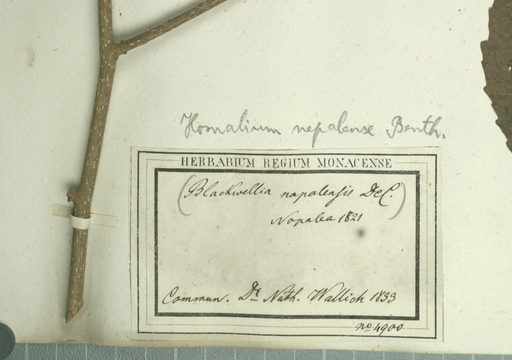 Homalium nepalense Benth.
HERBARIUM REGIUM MONACENSE
(Blackwellia napalensis DeC.)
Napalea 1821
Commun. Dr. Nath. Wallich 1833
no 4900